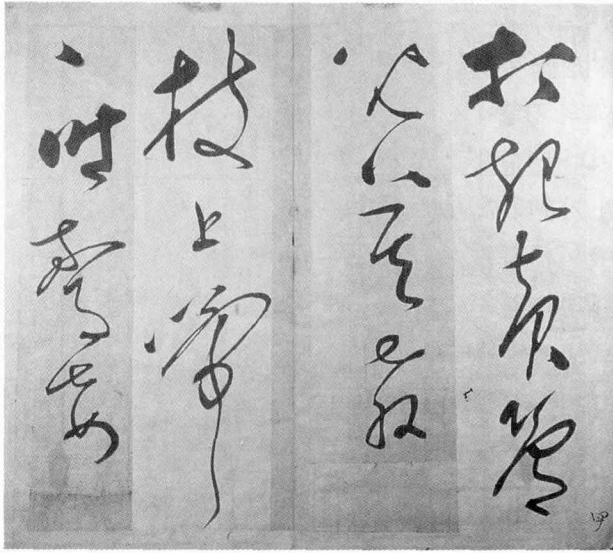 打起黄鶯
兒莫教
枝上啼
〻時驚妾